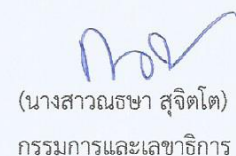 (นางสาวณธษา สุจิตโต)
กรรมการและเลขาธิการ